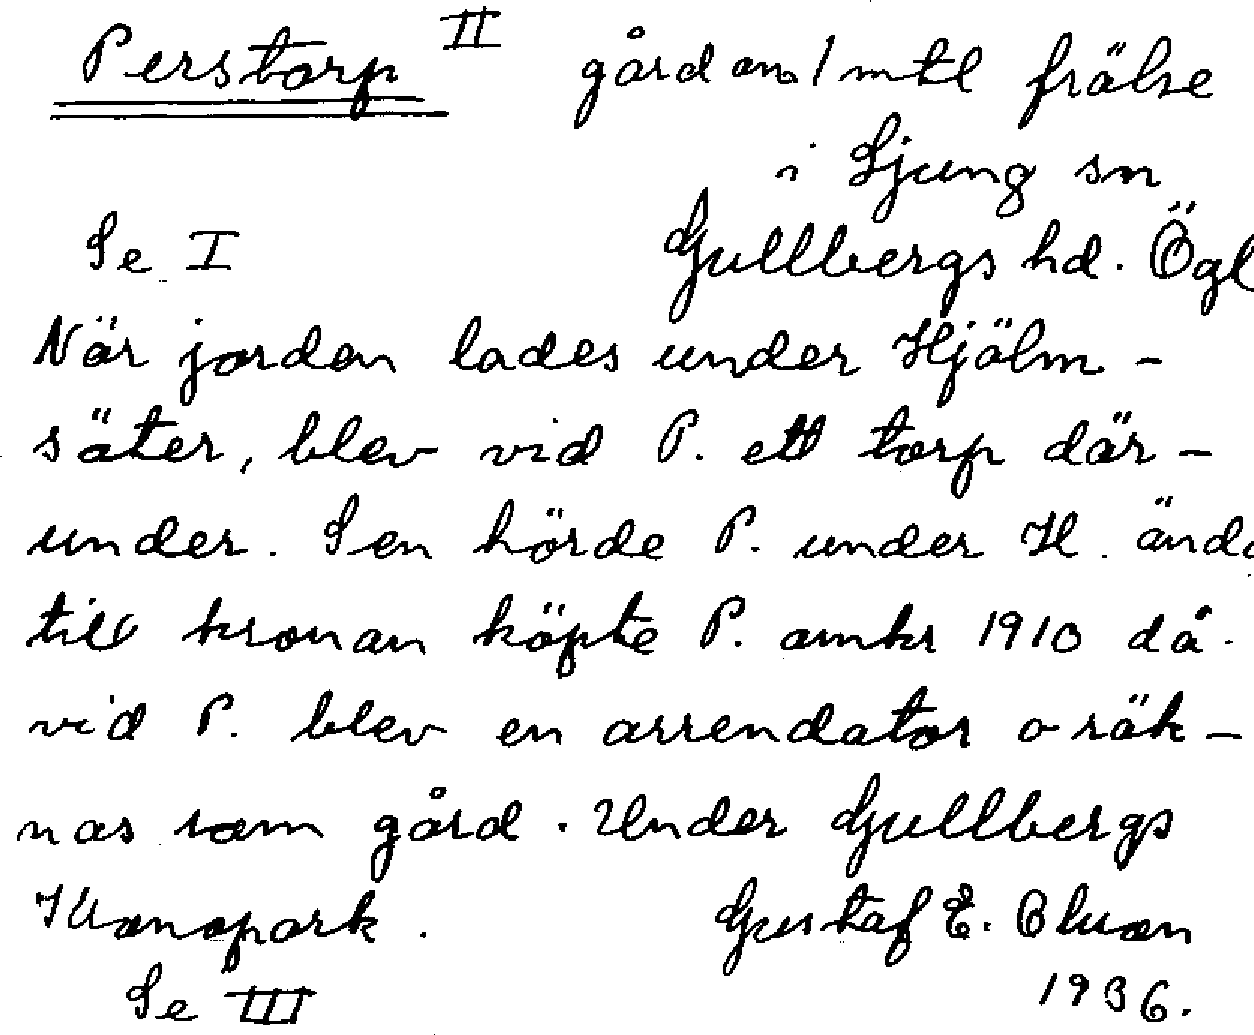 Perstorp II gård om 1 mtl frälse
i Ljung sn
Se I Gullbergs hd. Ögl
När jorden lades under Hjälm-
säter, blev vid P. ett torp där-
under. Sen hörde P. under H. ända
till kronan köpte P. omkr 1910 då
vid P. blev en arrendator o räk-
nas som gård. Under Gullbergs
Kronopark. Gustaf E.
Se III 1936.